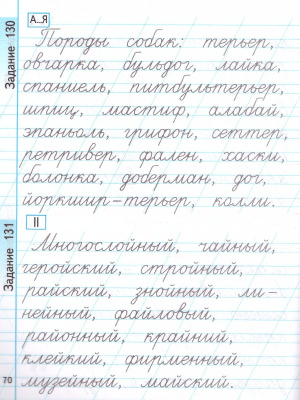 Задание 130
А...Я
Породы собак: терьер,
овчарка, бульдог, лайка,
спаниель, питбультерьер,
шпиц, мастиф, алабай,
эпаньоль, грифон, сеттер,
ретривер, фален, хаски,
болонка, доберман, дог,
йоркшир-терьер, колли.
Задание 131
II
Многослойный, чайный,
геройский, стройный,
райский, знойный, ли-
нейный, файловый,
районный, крайний,
клейкий, фирменный,
музейный, майский.
70